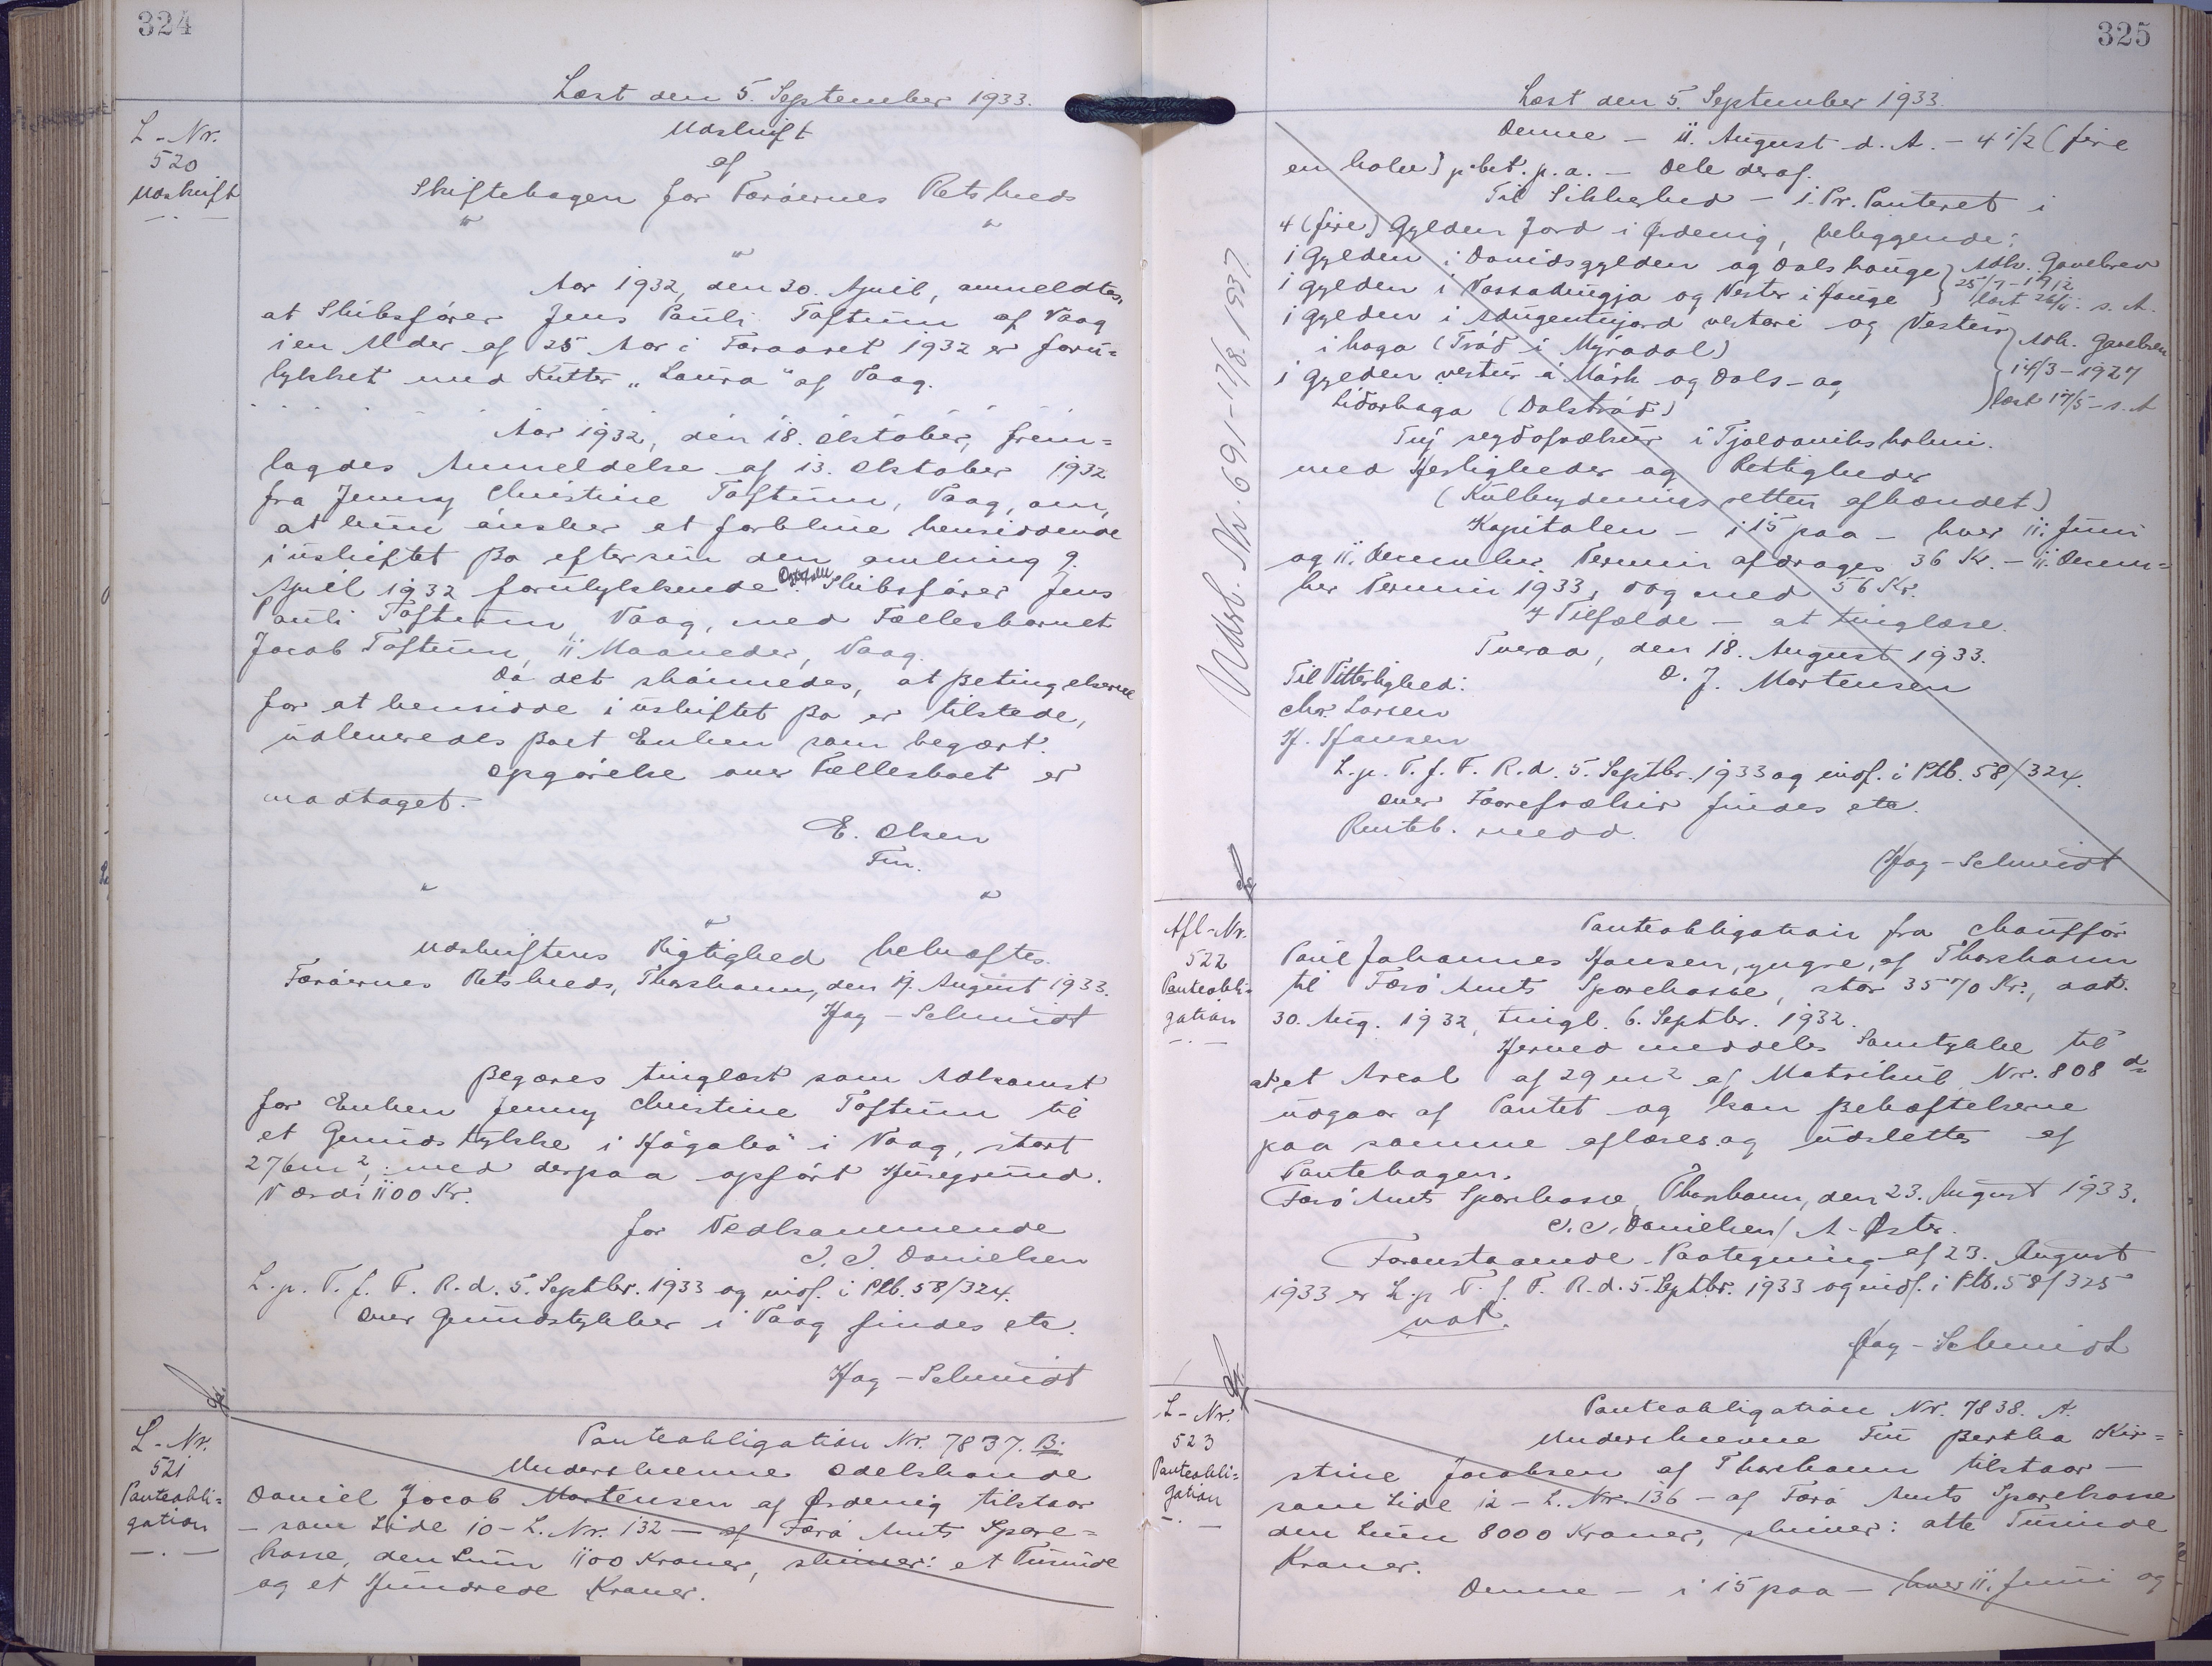 324
Læst den 5. September 1933.
L-Nr.
520
Udskrift
Udskrift
af
Skiftebogen for Færöernes Retskreds
Aar 1932, den 30. April, anmeldtes,
at Skibsfører Jens Pauli Toftum af Vaag
i en Alder af 25 Aar i Foraaret 1932 er foru=
lykket med Kutter "Laura" af Vaag.
Aar 1932, den 18. Oktober, frem=
lagdes Anmeldelse af 13. Oktober 1932
fra Jenny Christine Toftum, Vaag, om,
at hun ønsker at forblive hensiddende
i uskiftet Bo efter sin den omkring 9.
April 1932 forulykkende Skibsfører Jens
Pauli Toftum, Vaag, med Fællesbarnet
Jacob Toftum, 11 Maaneder, Vaag.
Da det skønnedes, at Betingelserne
for at hensidde i uskiftet Bo er tilstede,
udleveredes Boet Enken som begært.
Opgørelse over Fællesboet er
modtaget.
E. Olsen
Fm.
Udskriftens Rigtighed bekræftes.
Færöernes Retskreds, Thorshavn, den 17. August 1933.
Hag-Schmidt
Begæres tinglæst som Adkomst
for Enken Jenny Christine Toftum til
et Grundstykke i "Hågaleå" i Vaag, stort
276 m², med derpaa opført Husegrund.
Værdi 1100 Kr.
for Vedkommende
J. J. Danielsen
L. p. T. f. F. R. d. 5. Septbr. 1933 og indf. i Ptb. 58/324.
Over Grundstykker i Vaag findes etc.
Hag-Schmidt
L-Nr.
521
Panteobli=
gation
Panteobligation Nr. 7837. B.
Underskrevne Odelsbonde
Daniel Jocob Mortensen af Ørdevig tilstaar
- som Side 10 - L. Nr. 132 - af Færö Amts Spare=
kasse, den Sum 1100 Kroner, skriver: et Tusinde
og et Hundrede Kroner.
325
Læst den 5. September 1933.
Denne - 11. August d. A. - 4 1/2 (fire
en halv) pCt. p. a. - Dele deraf.
Til Sikkerhed - 1. Pr. Panteret i
4 (fire) Gylden Jord i Ørdevig, beliggende:
1 Gylden i Davidsgylden og Dalshauge } Adk. Gavebrev
1 Gylden i Vassadingja og Vester i Hauge } 25/7-1912
læst 26/11. s. A.
1 Gylden i vestari og Vestur } Adk. Gavebrev
i haga (Tråd i Mýradal)
1 Gylden vestur á Mörk og Dals- og } 14/3-1927
Lidarhaga (Dalstråd) } læst 17/5-s. A
Tríj seyðafrælsur i Tjaldavíksholmi.
med Herligheder og Rettigheder
(Kulbrydningsretten afhændet)
Kapitalen - i 15 paa - hver 11. Juni
og 11. December Termin afdrages 36 Kr. - 11. Decem=
ber Termin 1933, dog med 56 Kr.
I Tilfælde - at tinglæse.
Tveraa, den 18. August 1933.
D. J. Mortensen
Til Vitterlighed:
Chr. Larsen
H. Hansen
L. p. T. f. F. R. d. 5. Septbr. 1933 og indf. i Ptb. 58/324.
Over Faarefrælsir findes etc.
Renteb. medd.
Hag-Schmidt
Udsl. Sk. 691-17/8. 1937.
Afl-Nr.
522
Panteobli=
gation
Panteobligation fra Chauffør
Paul Johannes Hansen, yngre, af Thorshavn
til Færö Amts Sparekasse, stor 3570 Kr., dat.
30. Aug. 1932, tingl. 6. Septbr. 1932.
Herved meddeles Samtykke til
at et Areal af 29 m² af Matrikul Nr. 808
udgaar af Pantet og kan Behæftelserne
paa samme aflæses og udslettes af
Pantebogen.
Færö Amts Sparekasse, Thorshavn, den 23. August 1933.
J. J. Danielsen / A-Øster.
Foranstaaende Paategning af 23. August
1933 er L. p. T. f. F. R. d. 5. Septbr. 1933 og indf. i Ptb. 58/325
not.
Hag-Schmidt
L-Nr.
523
Panteobli=
gation
Panteobligation Nr. 7838. A.
Underskrevne Fru Bertha Kir=
stine Jacobsen af Thorshavn tilstaar -
som Side 12 - L. Nr. 136 - af Færö Amts Sparekasse
den Sum 8000 Kroner, skriver: otte Tusinde
Kroner.
Denne - i 15 paa - hver 11. Juni og